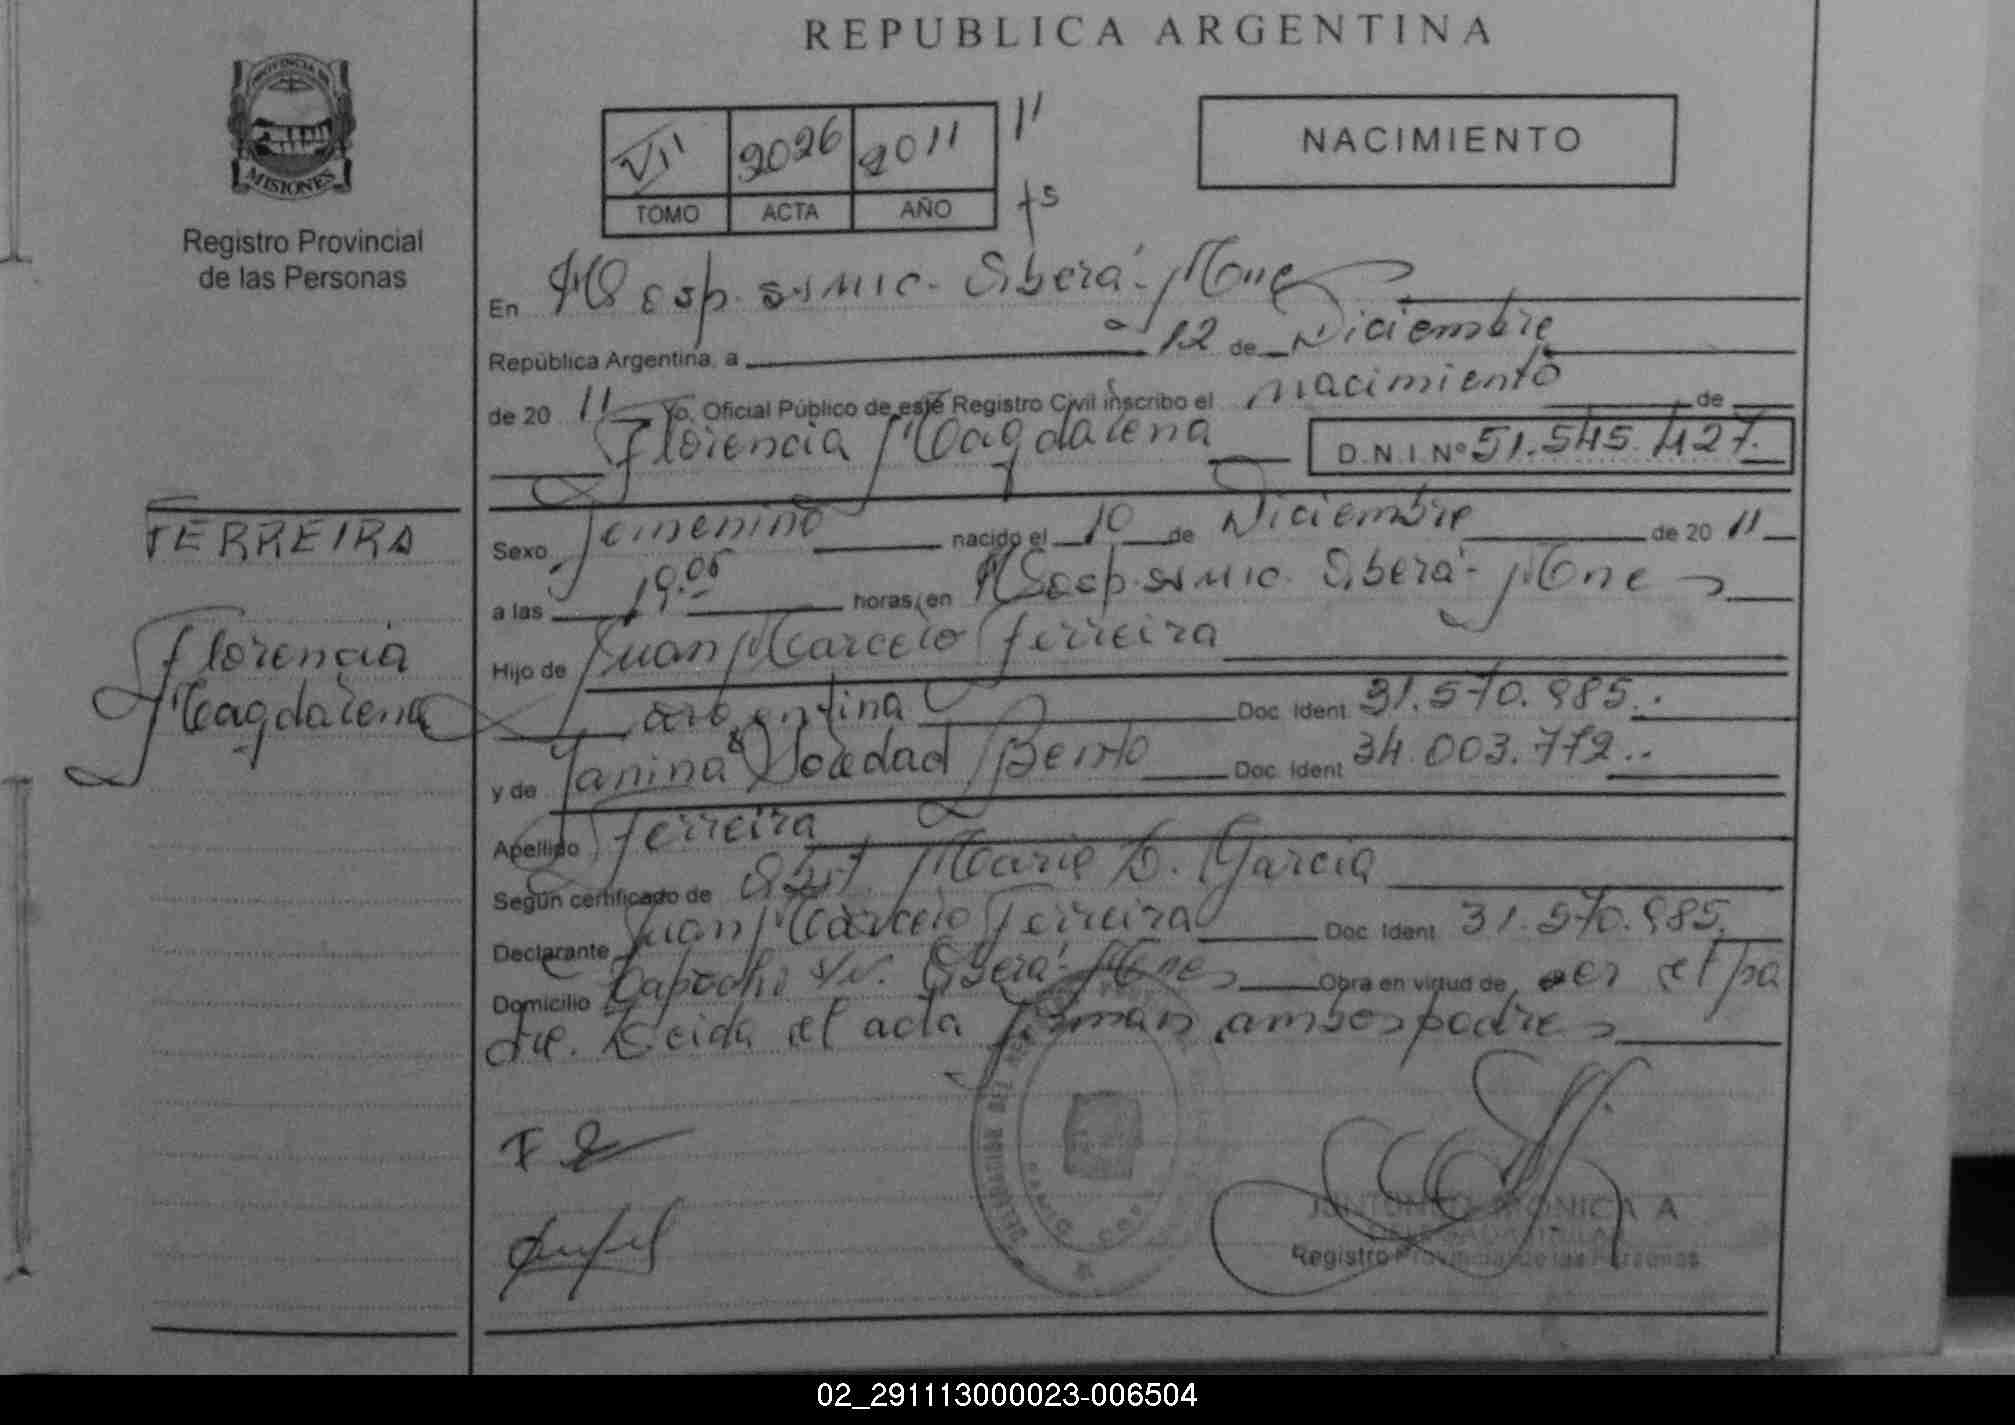 REPUBLICA ARGENTINA
PROVINCIA DE
MISIONES
Registro Provincial
de las Personas
VII 2026 2011 11
TOMO ACTA AÑO fs
NACIMIENTO
En Hosp. SAMIC. Oberá - Mnes
República Argentina, a 12 de Diciembre
de 20 11 Yo, Oficial Público de este Registro Civil inscribo el nacimiento de
Florencia Magdalena D.N.I. Nº 51.545.427.
FERREIRA
Sexo femenino nacido el 10 de Diciembre de 20 11
a las 19.05 horas, en Hosp. SAMIC. Oberá - Mnes
Florencia
Magdalena
Hijo de Juan Marcelo Ferreira
argentina Doc. Ident. 31.570.985..
y de Yanina Soledad Doc. Ident. 34.003.772..
Apellido Ferreira
Según certificado de Obst. Marie D. Garcia
Declarante Juan Marcelo Ferreira Doc. Ident. 31.570.985.
Domicilio s/n. Oberá - Mnes Obra en virtud de ser el pa
dre. Leida el acta firman ambos padres
MONICA A
Registro Provincial de las Personas
02_291113000023-006504